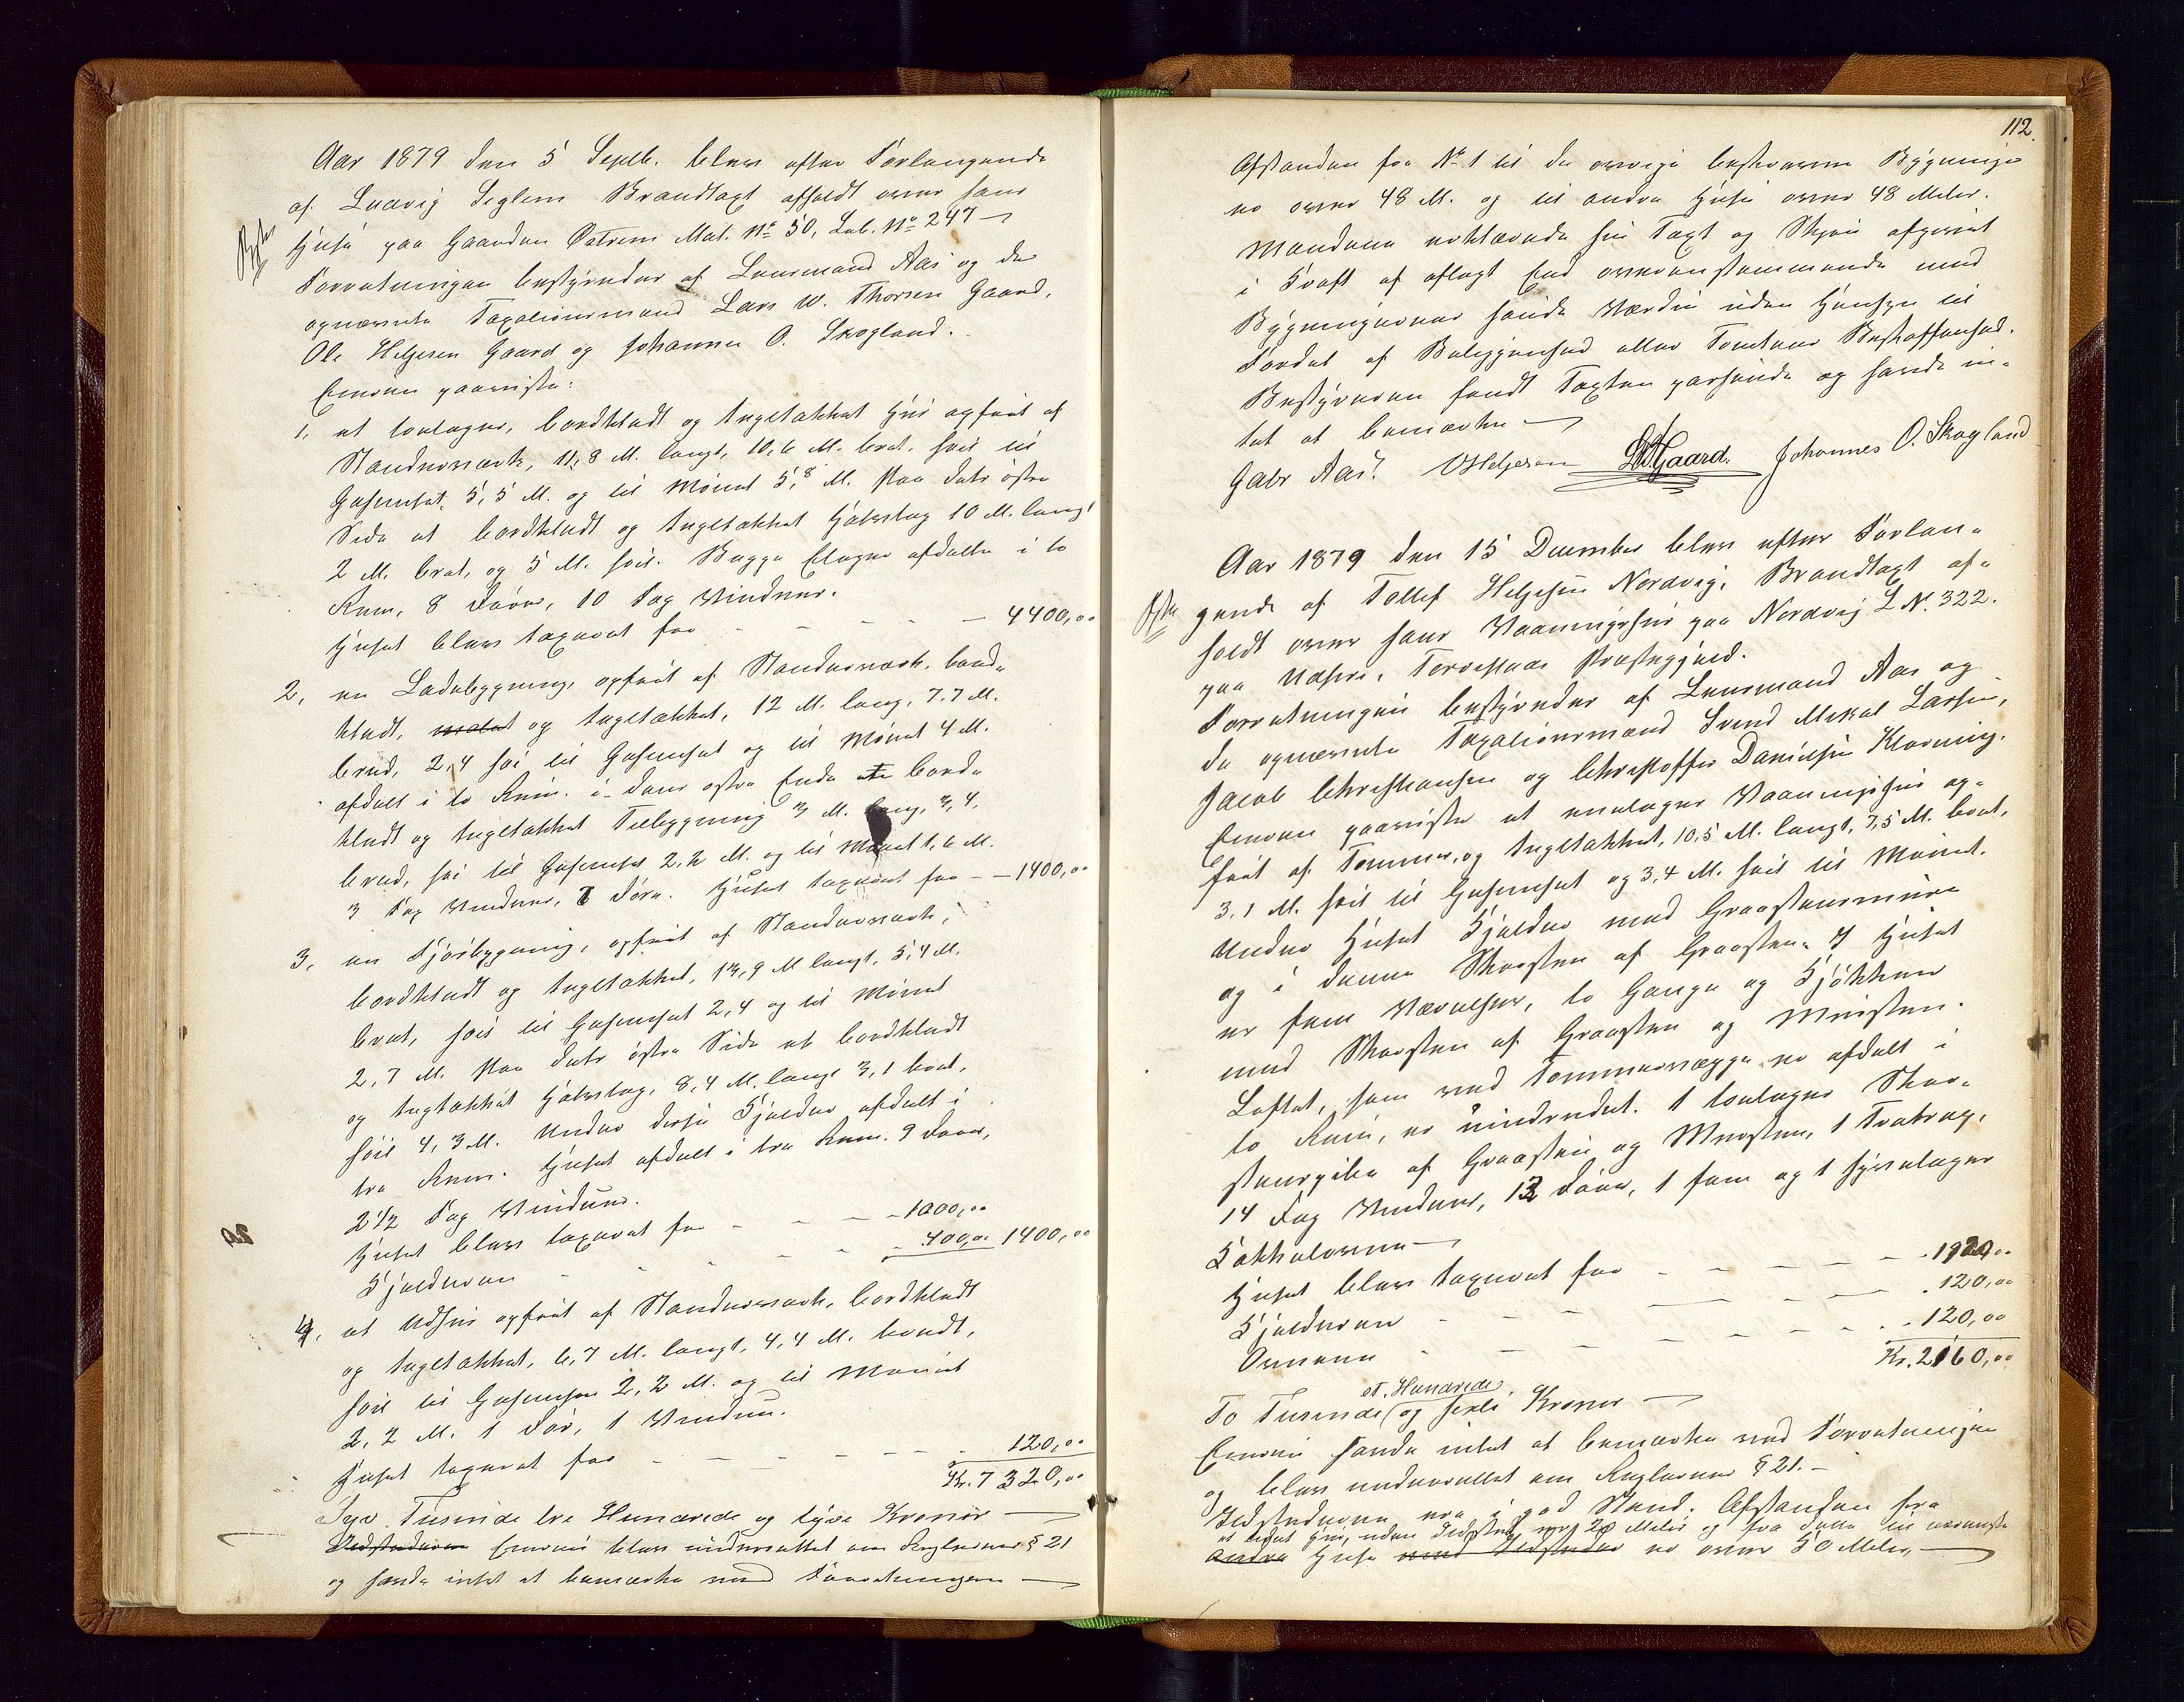 Aar 1879 den 5 Septb. blev efter Forlangende
af Ludvig Seglem Brandtaxt afholdt over hans
Huse paa Gaarden Østrem Mat. No 50, Lab. No 247
Forretningen bestyredes af Lensmand Aas og de
opnævnte Taxationsmænd Lars W. Thorsen Gaard,
Ole Helgesen Gaard og Johannes O. Skogland.
Eieren paaviste:
1, et toetages, bordklædt og tegltækket Hus opført af
Standerværk, 11,8 M. langt, 10,6 M. bret, høit til
Gesimset 5,5 M. og til Mønet 5,8 M. Paa dets østre
Side et bordklædt og tegltækket Halvtag 10 M. langt
2 M. bret, og 5 M. høit. Begge Etager afdelte i to
Rum, 8 Døre, 10 Fag Vinduer.
Huset blev taxeret for - - - - - 4400,00
2, en Ladebygning, opført af Standerværk, bord-
klædt, malet og tegltækket, 12 M. lang, 7,7 M.
bred, 2,4 høi til Gesimset og til Mønet 4 M.
afdelt i to Rum. i dens østre Ende en bord-
klædt og tegltækket Tilbygning 3 M. lang, 3,4,
bred, høi til Gesimset 2,2 M. og til Mønet 1,6 M.
3 Fag Vinduer, 7 Døre. Huset taxeret for - - 1400,00
3, en Fjøsbygning, opført af Standerværk,
bordklædt og tegltækket, 13,9 M langt, 5,4 M.
bret, høit til Gesimset 2,4 og til Mønet
2,7 M. Paa dets østre Side et bordklædt
og tegltækket Halvtag, 8,4 M. langt 3,1 bret,
høit 4,3 M. Under disse Kjelder afdelt i
tre Rum. Huset afdelt i tre Rum. 9 Døre,
2 1/2 Fag Vinduer.
Huset blev taxeret for - - - - 1000,00
Kjelderen - - - - - 400,00 1400,00
4, et Udhus opført af Standerværk, bordklædt
og tegltækket, 6,7 M. langt, 4,4 M. bredt,
høit til Gesimsen 2,2 M. og til Mønet
2,2 M. 1 Dør, 1 Vindue.
Huset taxeret for - - - - - 120,00
Kr. 7320,00
Syv Tusinde tre Hundrede og tyve Kroner
Ildstederne Eieren blev underrettet om Reglernes § 21
og havde intet at bemærke ved Forretningen
112.
Afstanden fra No 1 til de øvrige beskrevne Bygninger
er over 48 M. og til andre Huse over 48 Meter.
Mændene erklærede sin Taxt og Skjøn afgivet
i Kraft af aflagt Eed overensstemmende med
Bygningernes sande Værdie uden Hensyn til
Fordel af Beliggenhed eller Tomtens Beskaffenhed.
Bestyreren fandt Taxten passende og havde in-
tet at bemærke
Gabr Aas. OHelgesen LWGaard. Johannes O. Skogland
Aar 1879 den 15 December blev efter Forlan-
gende af Tollef Helgesen Nordvig, Brandtaxt af-
holdt over hans Vaaningshus paa Nordvig L N. 322.
paa Utsire, Torvestads Præstegjeld.
Forretningen bestyredes af Lensmand Aas og
de opnævnte Taxationsmænd Svend Mikal Larsen,
Jacob Christiansen og Christoffer Danielsen Klovning.
Eieren paaviste et enetages Vaaningshus op-
ført af Tømmer, og tegltækket, 10,5 M. langt, 7,5 M. bret,
3,1 M. høit til Gesimset og 3,4 M. høit til Mønet.
Under Huset Kjelder med Graastensmure
og i denne Skorsten af Graasten. I Huset
er fem Værelser, to Gange og Kjøkken
med Skorsten af Graasten og Mursten.
Loftet, som med Tømmervægge er afdelt i
to Rum, er uindredet. 1 toetages Skor-
stenspibe af Graasten og Mursten, 1 Trætrap,
14 Fag Vinduer, 12 Døre, 1 fem og 1 fireetages
Kakkelovne
Huset blev taxeret for - - - - - 1920,00
Kjelderen - - - - - 120,00
Ovnene - - - - - 120,00
Kr. 2160,00
et Hundrede
To Tusinde og sexti Kroner
Eieren havde intet at bemærke ved Forretningen
og blev underrettet om Reglernes § 21.
Ildstederne ere i god Stand. Afstanden fra
et lidet Hus, uden Ildsted er 20 Meter og fra dette til nærmeste
andre Huse med Ildsteder er over 50 Meter